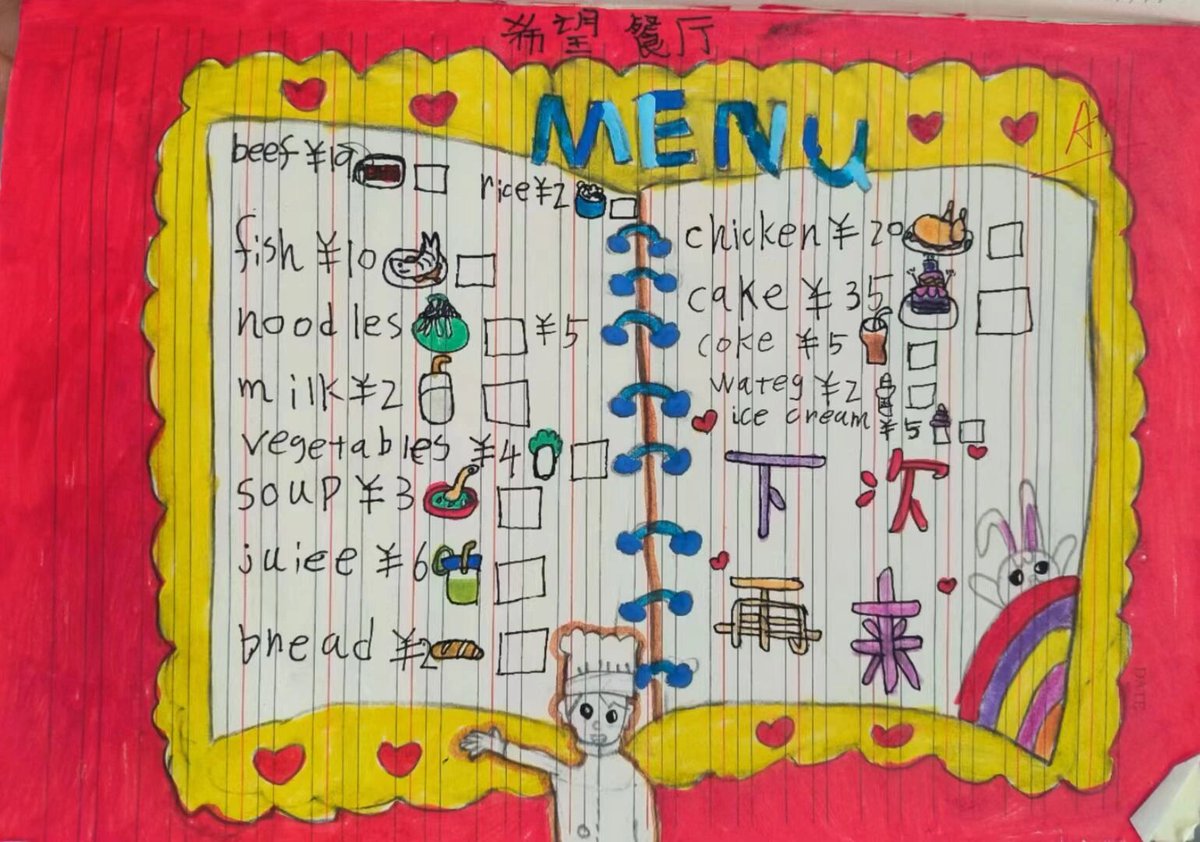 希望餐厅
MENU
A
beef ¥10
rice ¥2
fish ¥10
noodles ¥5
milk ¥2
vegetables ¥4
soup ¥3
juiee ¥6
bnead ¥2
chicken ¥20
cake ¥35
coke ¥5
wateg ¥2
ice cream ¥5
下次
再来
DATE